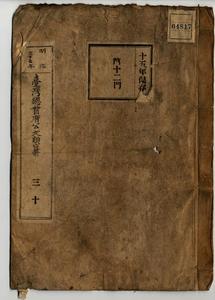 04817
十五年保存
門十二門
明治
三十五年
臺灣總督府公文類纂
三十